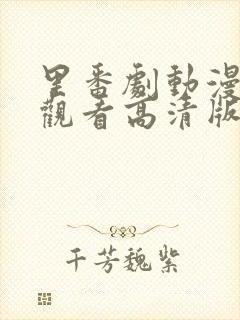 里番劇動漫
觀看高清版
千芳魏紫